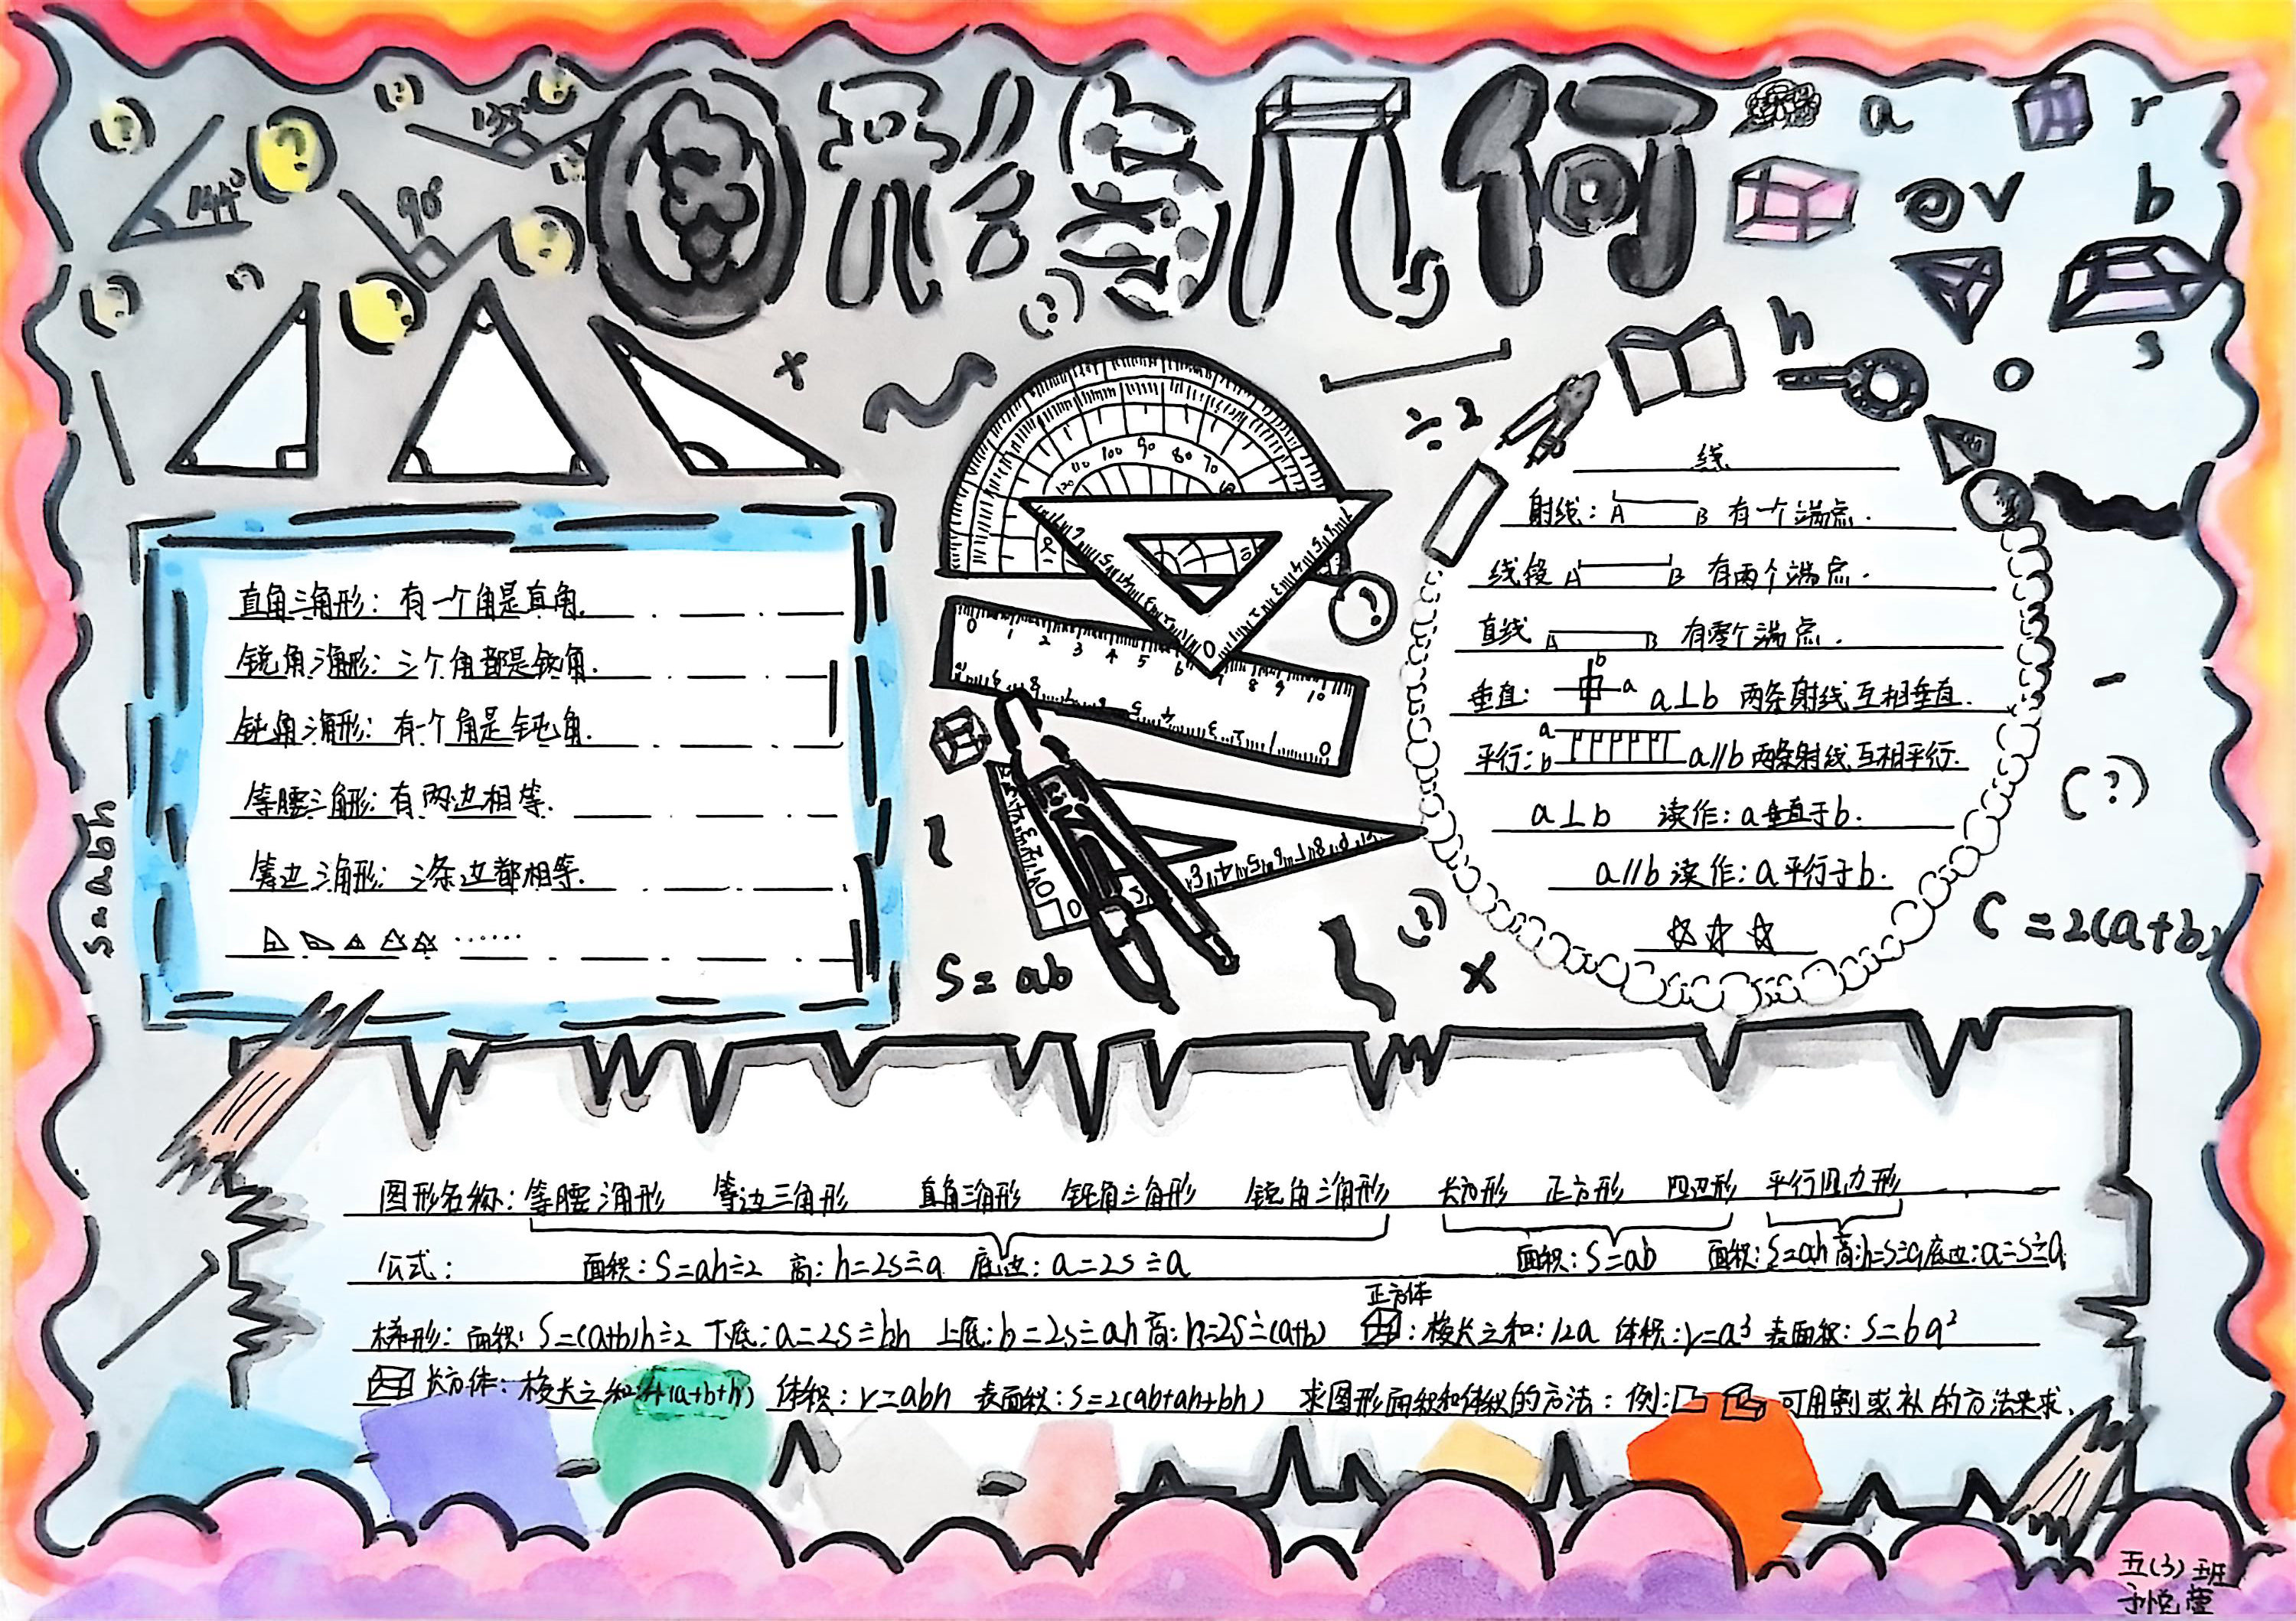 图形与几何
144° 90° 135°
a r
v b
h s
÷2
直角三角形：有一个角是直角.
锐角三角形：三个角都是锐角.
钝角三角形：有一个角是钝角.
等腰三角形：有两边相等.
等边三角形：三条边都相等.
......
线
射线：A B 有一个端点.
线段 A B 有两个端点.
直线 A B 有零个端点.
垂直： b a a⊥b 两条射线互相垂直.
平行： a b a//b 两条射线互相平行.
a⊥b 读作：a垂直于b.
a//b 读作：a平行于b.
S=abh
S=ab
(?)
C=2(a+b)
图形名称：等腰三角形 等边三角形 直角三角形 钝角三角形 锐角三角形 长方形 正方形 四边形 平行四边形
公式： 面积：S=ah÷2 高：h=2s÷a 底边：a=2s÷a 面积：S=ab 面积：S=ah 高：h=s÷a 底边：a=s÷a
梯形：面积：S=(a+b)h÷2 下底：a=2S÷bh 上底：b=2s÷ah 高：h=2S÷(a+b) 正方体：棱长之和：12a 体积：v=a³ 表面积：S=6a²
长方体：棱长之和：4(a+b+h) 体积：v=abh 表面积：s=2(ab+ah+bh) 求图形面积和体积的方法：例： 可用割或补的方法来求.
五(3)班